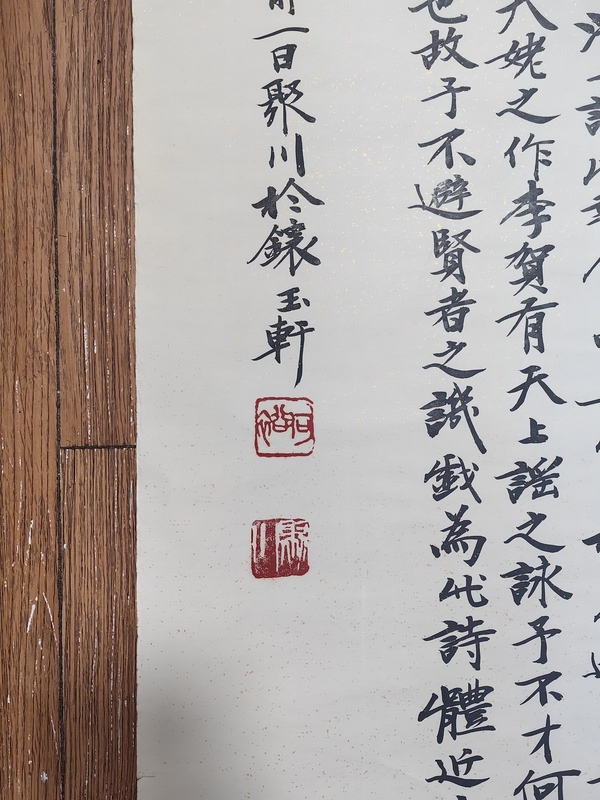 天姥之作李賀有天上謠之詠予不才何
也故予不避賢者之譏戲為此詩體近
前一日聚川於鑲玉軒
聚川